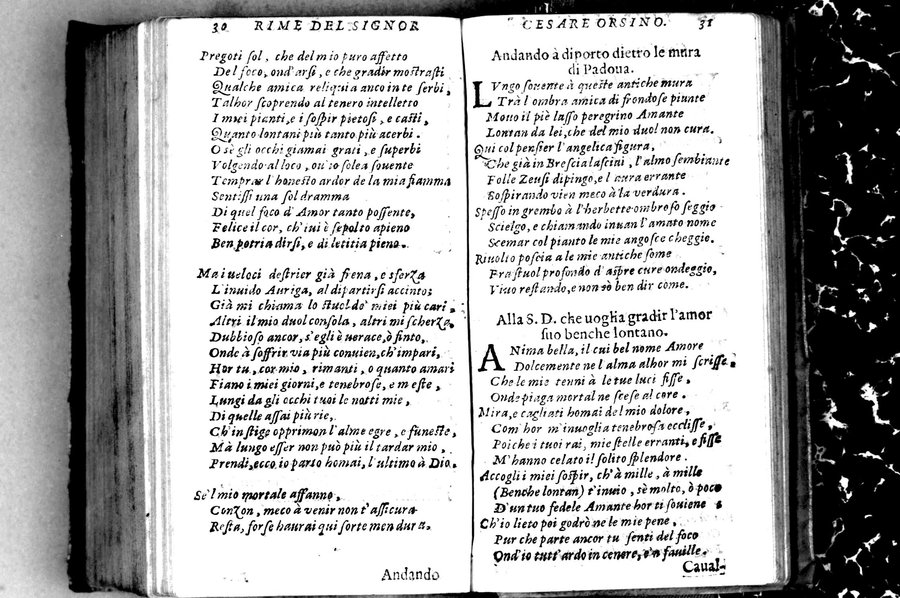 30 RIME DEL SIGNOR
Pregoti sol, che del mio puro affetto
Del foco, ond'arsi, e che gradir mostrasti
Qualche amica reliquia anco in te serbi,
Talhor scoprendo al tenero intelletto
I miei pianti, e i sospir pietosi, e casti,
Quanto lontani più tanto più acerbi.
O se gli occhi giamai grati, e superbi
Volgendo al loco, ou'io solea souente
Temprar l'honesto ardor de la mia fiamma
Sentissi una sol dramma
Di quel foco d'Amor tanto possente,
Felice il cor, ch'iui è sepolto apieno
Ben potria dirsi, e di letitia pieno.
Ma i ueloci destrier già fiena, e sferza
L'inuido Auriga, al dipartirsi accinto;
Già mi chiama lo stuol de' miei più cari,
Altri il mio duol consola, altri mi scherza,
Dubbioso ancor, s'egli è uerace, ò finto,
Onde à soffrir via più conuien, ch'impari,
Hor tu, cor mio, rimanti, o quanto amari
Fiano i miei giorni, e tenebrose, e meste,
Lungi da gli occhi tuoi le notti mie,
Di quelle assai più rie,
Ch'in stige opprimon l'alme egre, e funeste,
Mà lungo esser non può più il tardar mio,
Prendi, ecco, io parto homai, l'ultimo à Dio.
Se'l mio mortale affanno,
Conzon, meco à venir non t'assicura
Resta, forse haurai qui sorte men dura.
Andando
CESARE ORSINO. 31
Andando à diporto dietro le mura
di Padoua.
LVngo souente à queste antiche mura
Trà l'ombra amica di frondose piante
Mouo il piè lasso peregrino Amante
Lontan da lei, che del mio duol non cura.
Qui col pensier l'angelica figura,
Che già in Brescia lasciai, l'almo sembiante
Folle Zeusi dipingo, e l'aura errante
Sospirando vien meco à la verdura.
Spesso in grembo à l'herbette ombroso seggio
Scielgo, e chiamando inuan l'amato nome
Scemar col pianto le mie angosce cheggio.
Riuolto poscia a le mie antiche some
Fra stuol profondo d'aspre cure ondeggio,
Viuo restando, e non sò ben dir come.
Alla S. D. che uoglia gradir l'amor
suo benche lontano.
ANima bella, il cui bel nome Amore
Dolcemente ne l'alma alhor mi scrisse,
Che le mie tenni à le tue luci fisse,
Onde piaga mortal ne scese al core.
Mira, e cagliati homai del mio dolore,
Com'hor m'inuoglia tenebrosa ecclisse,
Poiche i tuoi rai, mie stelle erranti, e fisse
M'hanno celato il solito splendore.
Accogli i miei sospir, ch'à mille, à mille
(Benche lontan) t'inuio, sè molto, ò poco
D'un tuo fedele Amante hor ti souiene
Ch'io lieto poi godrò ne le mie pene,
Pur che parte ancor tu senti del foco
Ond'io tutt'ardo in cenere, e'n fauille.
Caual-